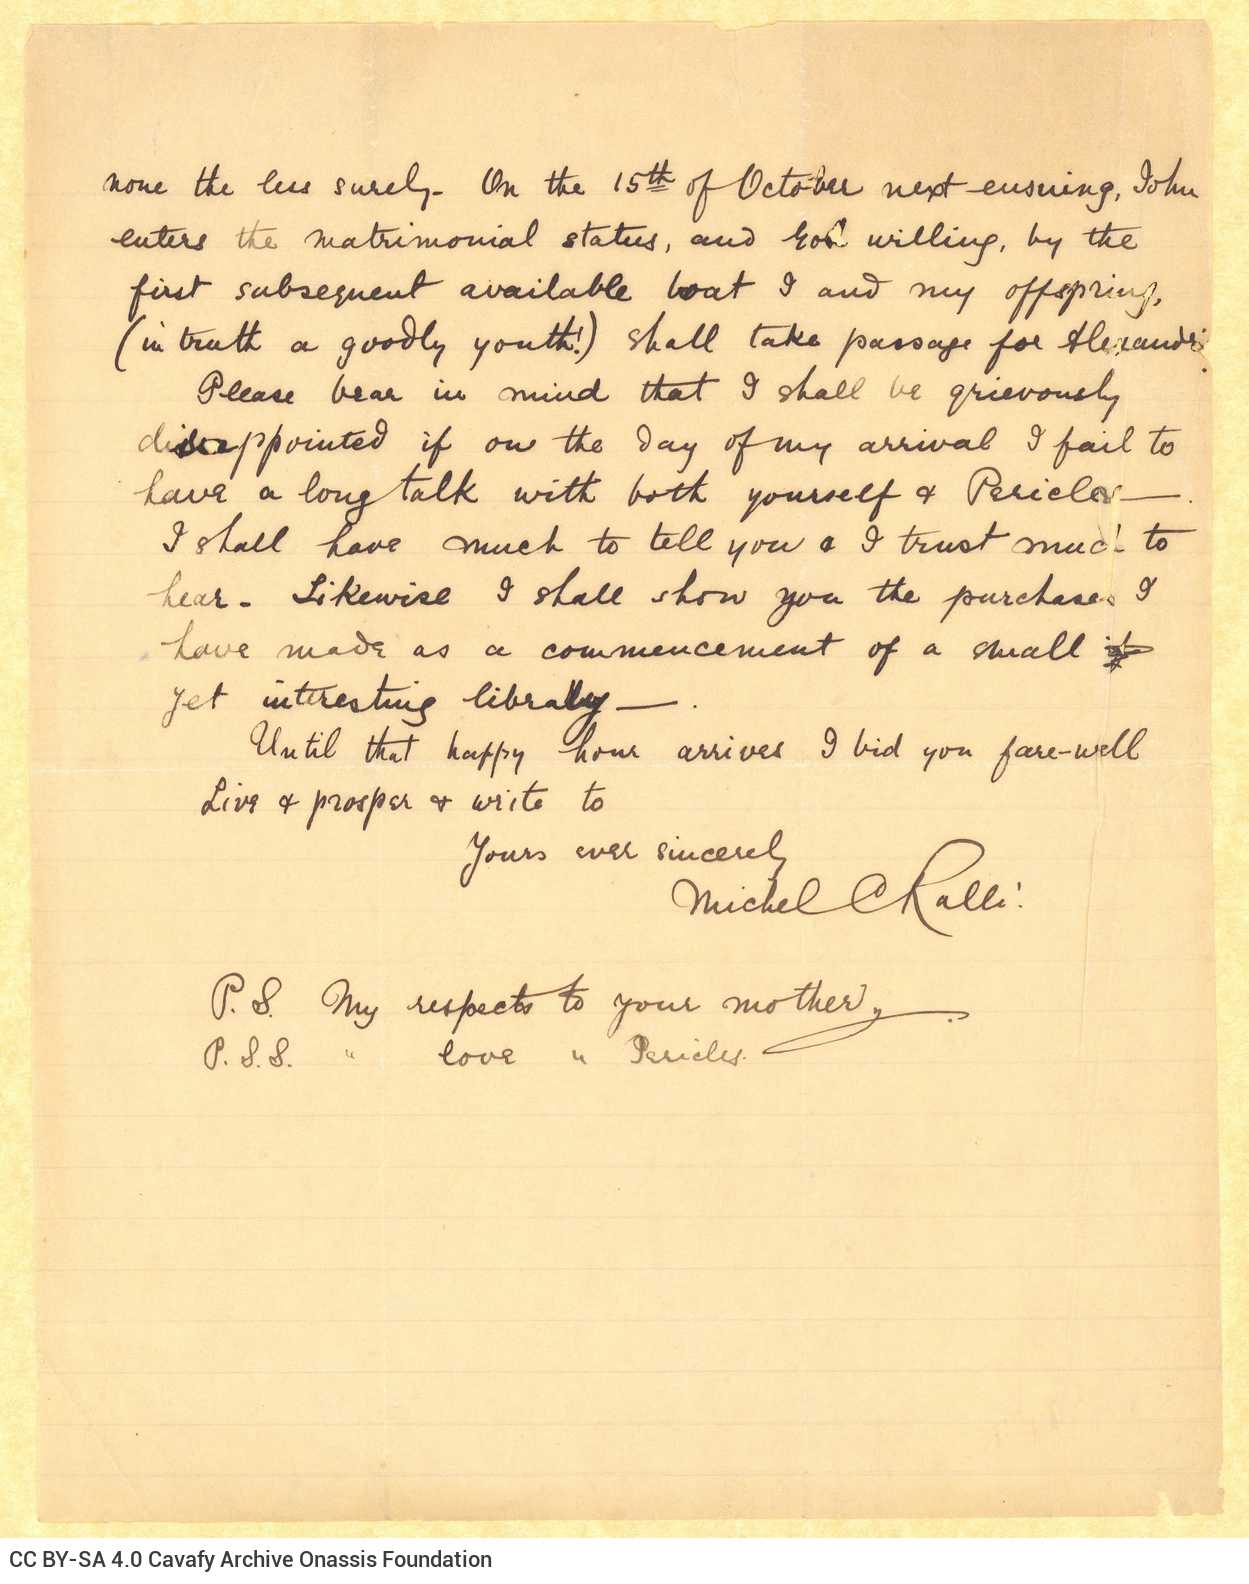 none the less surely. On the 15th of October next ensuing, John
enters the matrimonial status, and God willing, by the
first subsequent available boat I and my offspring,
(in truth a goodly youth!) shall take passage for Alexandri
Please bear in mind that I shall be grievously
disappointed if on the day of my arrival I fail to
have a long talk with both yourself & Pericles —.
I shall have much to tell you & I trust much to
hear. Likewise I shall show you the purchases I
have made as a commencement of a small
yet interesting library —.
Until that happy hour arrives I bid you fare-well
Live & prosper & write to
Yours ever sincerely
Michel C Ralli.
P.S. My respects to your mother,
P.S.S. " love " Pericles.
CC BY-SA 4.0 Cavafy Archive Onassis Foundation